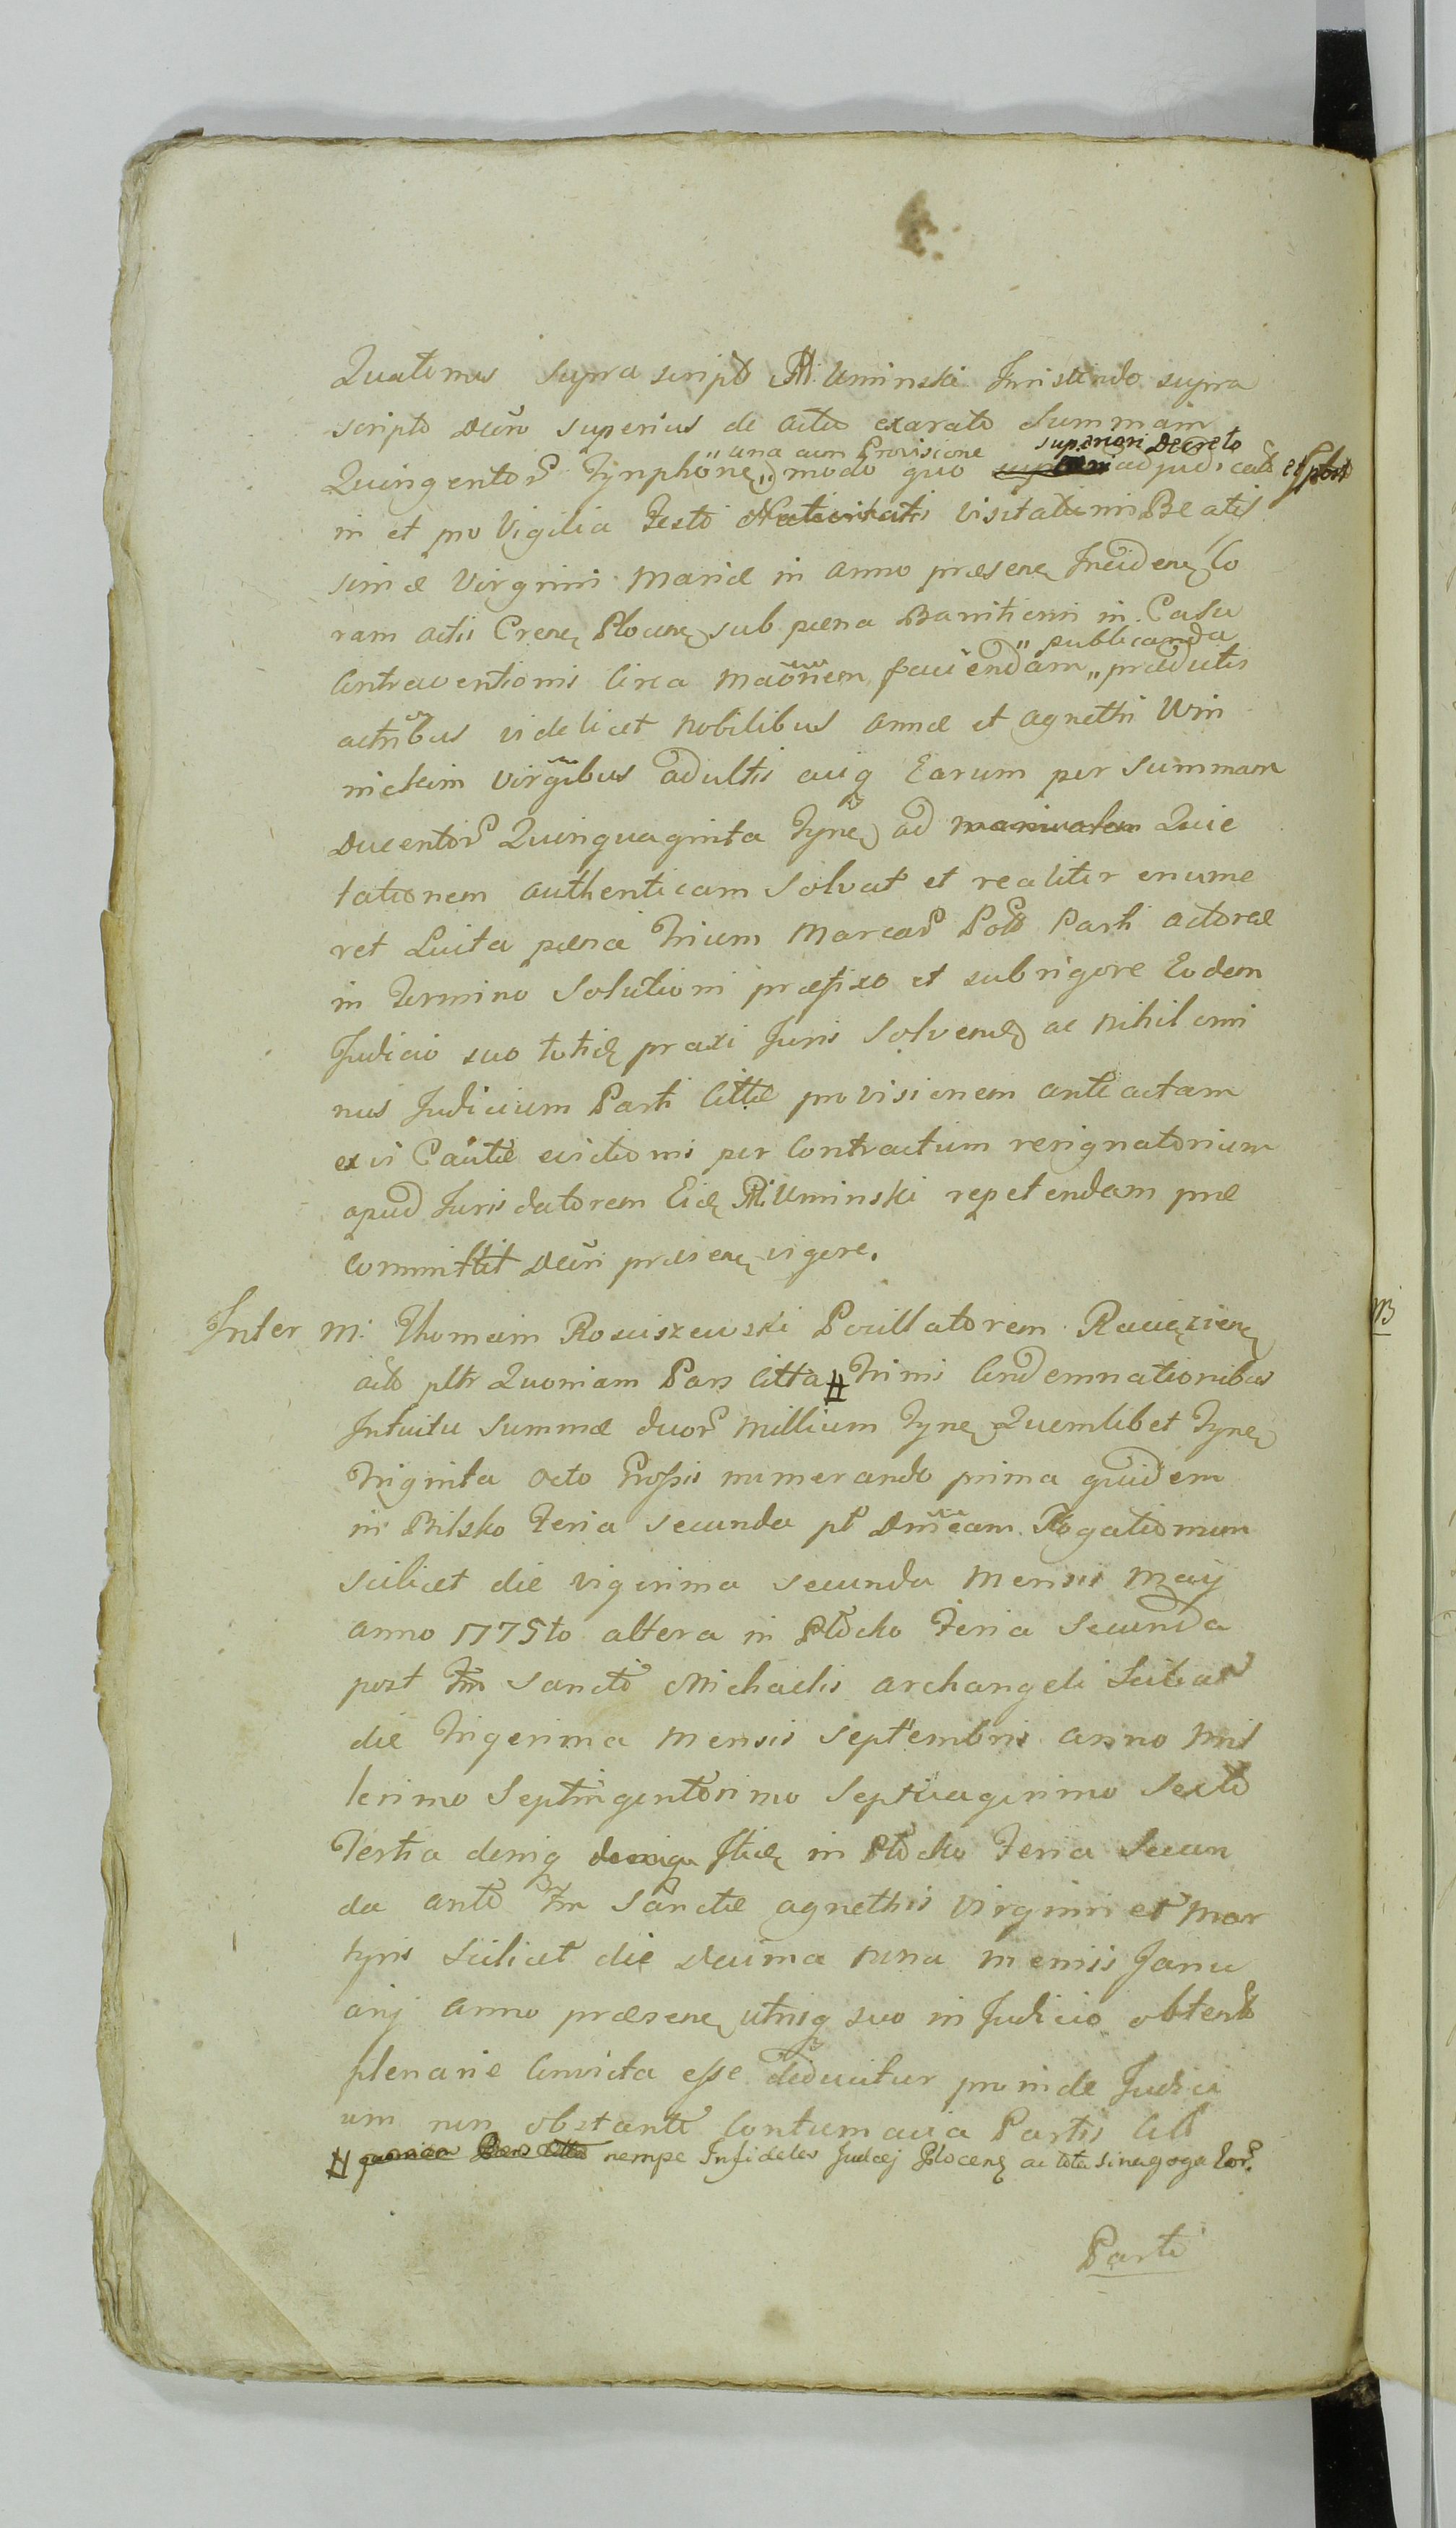 Quatenus supra scripto M. Uminski Insistendo supra
scripto Decro superius de actu exarato Summam
una cum Provisione superiori Decreto
Quingentor Tymphone modo quo adjudicat et
in et pro Vigilia Festi Nativitatis Visitationis Beatis
simæ Virginis Mariæ in Anno præsene Incidene Co
ram Actis Crene Plocene sub pæna Bannitionis in Casu
publicanda
Contraventionis Circa maōnem faciendam prædictis
actribus videlicet Nobilibus Annæ et Agnethi Win
nickim Virgibus adultis cuiq Earum per Summam
Ducentor Quinquaginta Tyne ad manualem Quie
tationem authenticam Solvat et realiter enume
ret Luita pæna Trium Marcar Polo Parti actoreæ
in Termino Solutioni præfixo et sub rigore Eodem
Judicio suo totide praxi Juris Solvende ac nihilomi
nus Judicium Parti Cittæ provisionem ante actam
ex vi Cautæ evictionis per Contractum resignatorium
apud Juris datorem Eide M. Uminski repetendam præ
committit Decri præsene vigore.
Inter M: Thomam Rosciszewski Pocillatorem Raciąziene
actō pltr Quoniam Pars Citta # Trinis Condemnationibus
Intuitu Summæ duor Millium Tyne Quemlibet Tyne
Triginta Octo Grossis numerando prima quidem
in Bilsko Feria Secunda pt Dnicam Rogationum
Scilicet die vigesima Secunda Mensis May
Anno 1775to altera in Płocko Feria Secunda
post Fm Sancti Michaelis Archangeli Scilicet
die Trigesima Mensis Septembris Anno Mil
lesimo Septingentesimo Septuagesimo Sexto
Tertia deniq deniqu Itide in Płocko Feria Secun
da ante Fm Sanctæ Agnethis Virginis et Mar
tyris Scilicet die Decima nona Mensis Janu
arij Anno præsene utrisq suo in Judicio obtent
plenarie Convicta esse deducitur proinde Judici
um non obstante Contumacia Partis Citt
# quoniam Pars Citta nempe Infideles Judæj Plocene ac tota Sinagoga Eor.
Parti